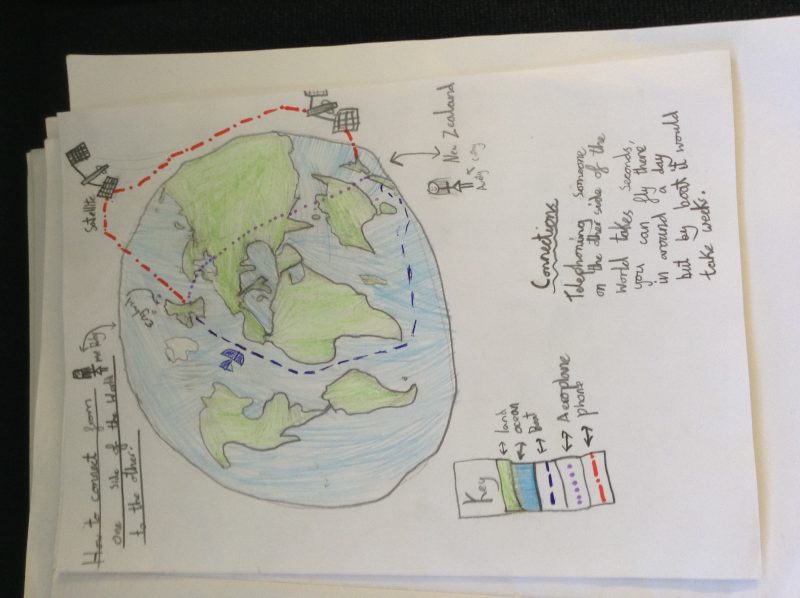 How to connect from
one side of the World
to the other!
Satellite
England
New Zealand
Key
land
ocean
Boat
Aeroplane
phone
Connections
Telephoning someone
on the other side of the
World takes seconds,
you can fly there
in around a day
but by boat it would
take weeks.